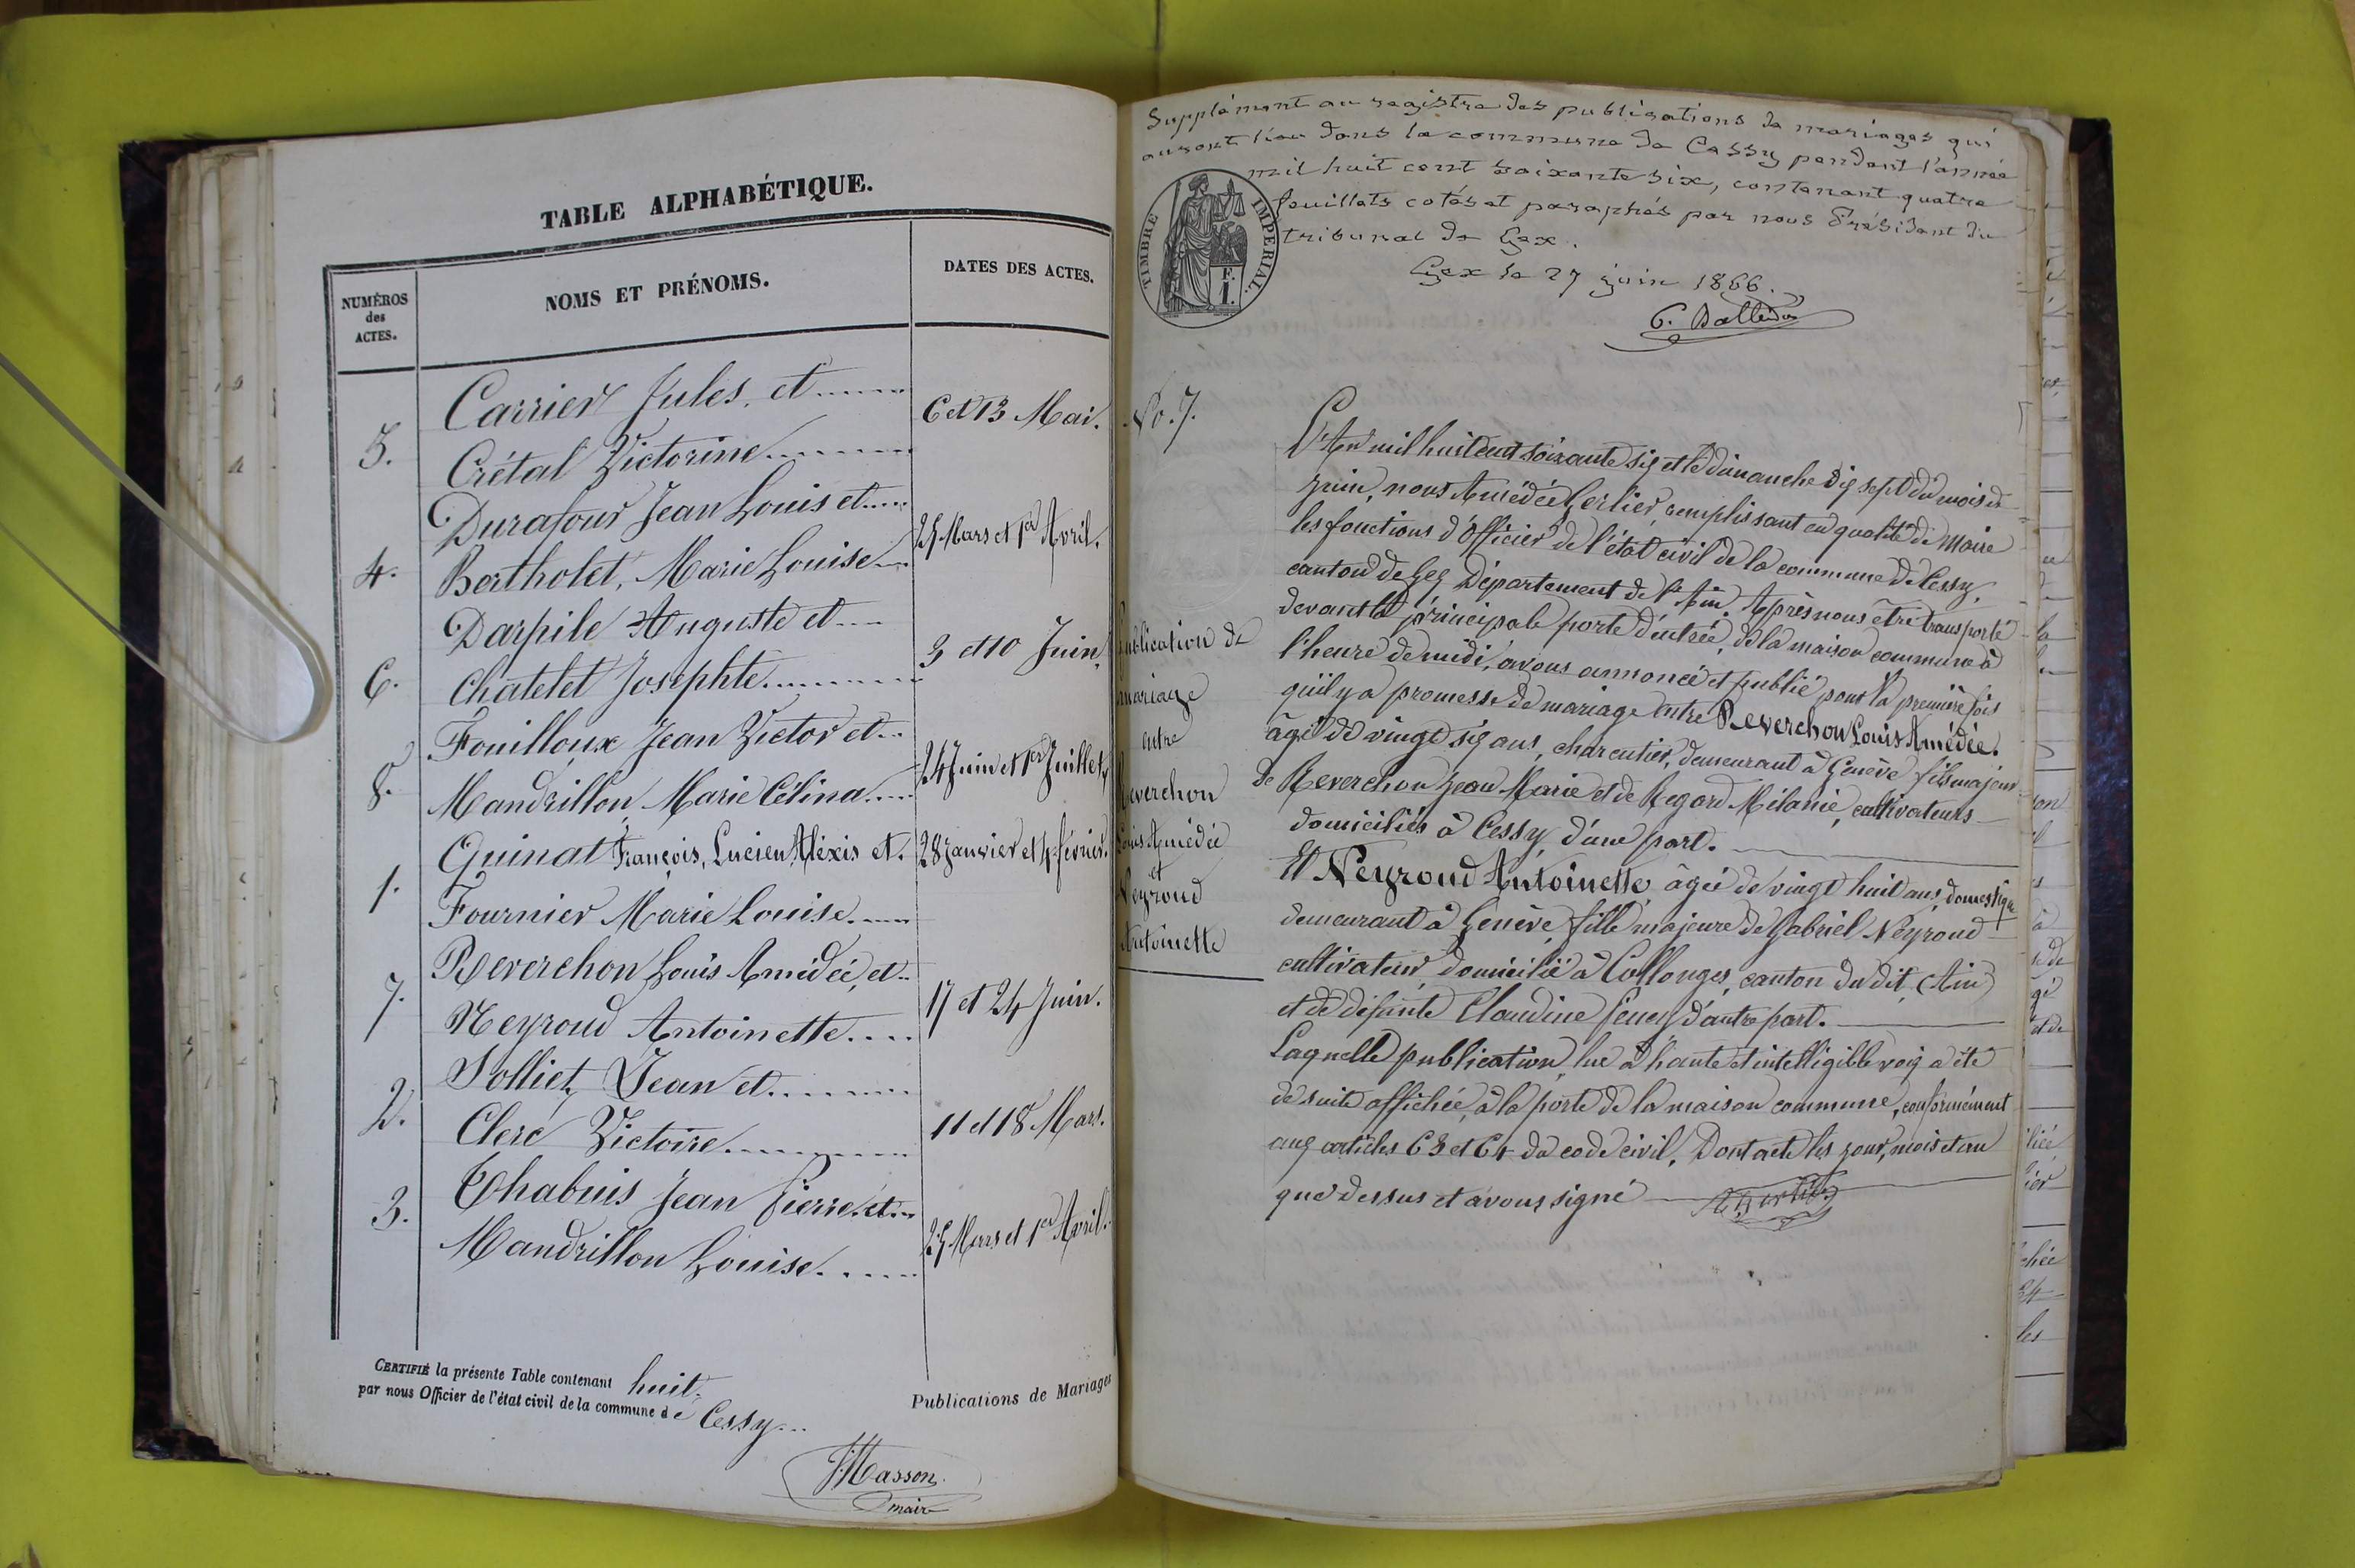 TABLE ALPHABÉTIQUE.
NUMÉROS
des
ACTES.
NOMS ET PRÉNOMS.
DATES DES ACTES.
5.
Carrier Jules, et
Crétal Victorine
6 et 13 Mai.
4.
Durafour Jean Louis et
Bertholet, Marie Louise
25 Mars et 1er Avril.
6.
Darpile Auguste et
Chatelet Josephte
3 et 10 Juin.
8.
Fouilloux Jean Victor et
Mandrillon Marie Célina
24 Juin et 1er Juillet,
1.
Quinat François, Lucien Aléxis et.
Fournier Marie Louise.
28 janvier et 4 février.
7.
Reverchon Louis Amédée, et
Neyroud Antoinette....
17 et 24 Juin.
2.
Solliet, Jean et
Clerc Victoire
11 et 18 Mars.
3.
Chabuis Jean Pierre et
Mandrillon Louise.....
25 Mars et 1er Avril.
CERTIFIÉ la présente Table contenant huit.
par nous Officier de l'état civil de la commune de Cessy...
Publications de Mariages
Masson
maire
Supplément au registre des publications de mariages qui
auront lieu dans la commune de Cessy pendant l'année
mil huit cent soixante six, contenant quatre
feuillets cotés et paraphés par nous Président du
tribunal de Gex.
Gex le 27 juin 1866.
TIMBRE IMPÉRIAL.
F.
I.
No. 7.
Publication de
mariage
entre
Reverchon
Louis Amédée
et
Neyroud
Antoinette
L'An mil huit cent soixante six et le dimanche dix sept du mois de
juin, nous Amédée Gerlier, remplissant en qualité de Maire
les fonctions d'Officier de l'état civil de la commune de Cessy,
canton de Gex Département de l'Ain. Après nous être transporté
devant la principale porte d'entrée, de la maison commune à
l'heure de midi, avons annoncé et publié pour la première fois
qu'il y a promesse de mariage entre Reverchon Louis Amédée.
âgé de vingt six ans, charcutier, demeurant à Genève fils majeur
de Reverchon Jean Marie et de Regard Mélanie, cultivateurs
domiciliés à Cessy, d'une part.
Et Neyroud Antoinette, âgée de vingt huit ans, domestique
demeurant à Genève, fille majeure de Gabriel Neyroud
cultivateur, domicilié à Collonges, canton du dit, (Ain)
et de défunte Claudine d'autre part.
Laquelle publication, lue à haute et intelligible voix a été
de suite affichée, à la porte de la maison commune, conformément
aux articles 63 et 64 du code civil. Dont acte les jour, mois et an
que dessus et avons signé